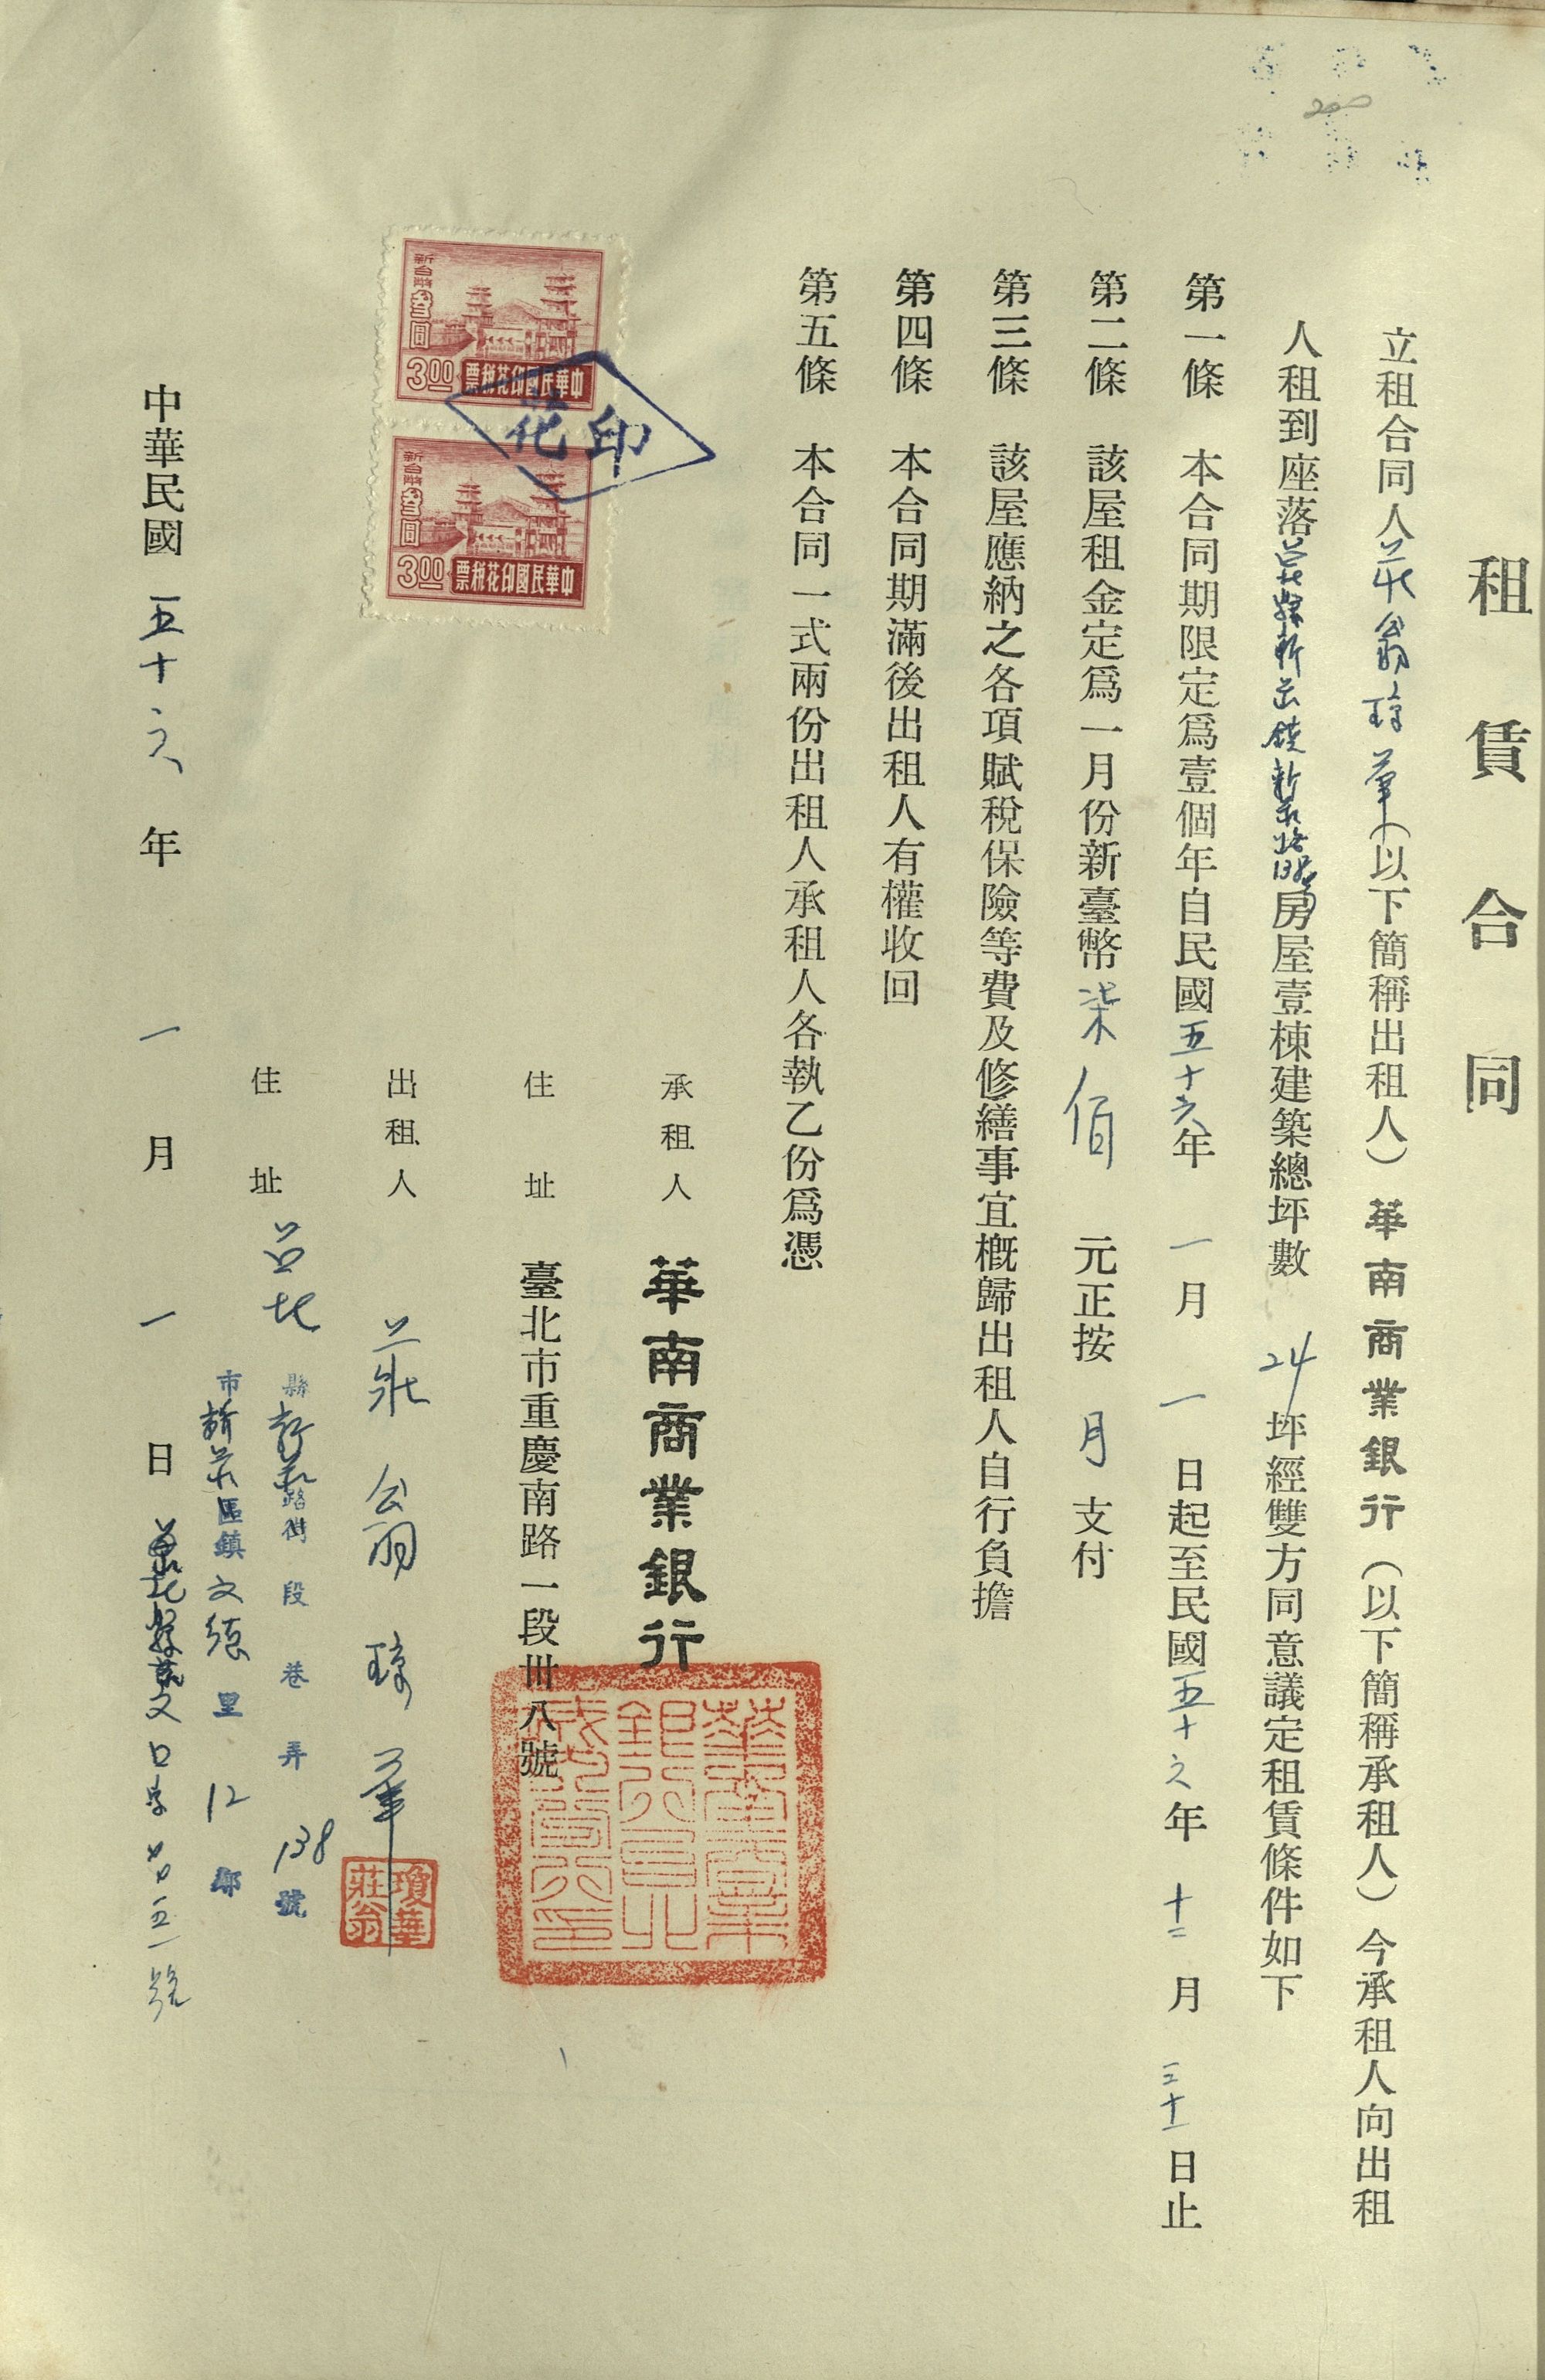 租賃合同
立租合同人莊翁瓊華（以下簡稱出租人）華南商業銀行（以下簡稱承租人）今承租人向出租
人租到座落台北縣新莊鎮新莊路138號房屋壹棟建築總坪數24坪經雙方同意議定租賃條件如下
第一條 本合同期限定爲壹個年自民國五十六年一月一日起至民國五十六年十二月三十一日止
第二條 該屋租金定爲一月份新臺幣柒佰元正按月支付
第三條 該屋應納之各項賦稅保險等費及修繕事宜槪歸出租人自行負擔
第四條 本合同期滿後出租人有權收回
第五條 本合同一式兩份出租人承租人各執乙份爲憑
承租人 華南商業銀行
住址 臺北市重慶南路一段卅八號
出租人 莊翁瓊華
瓊華莊翁
住址 台北縣市新莊區鎮文德里12鄰
新莊路街 段 巷 弄 138號
中華民國五十六年一月一日
新台幣叁圓
3.00
中華民國印花稅票
新台幣叁圓
3.00
中華民國印花稅票
印花
200